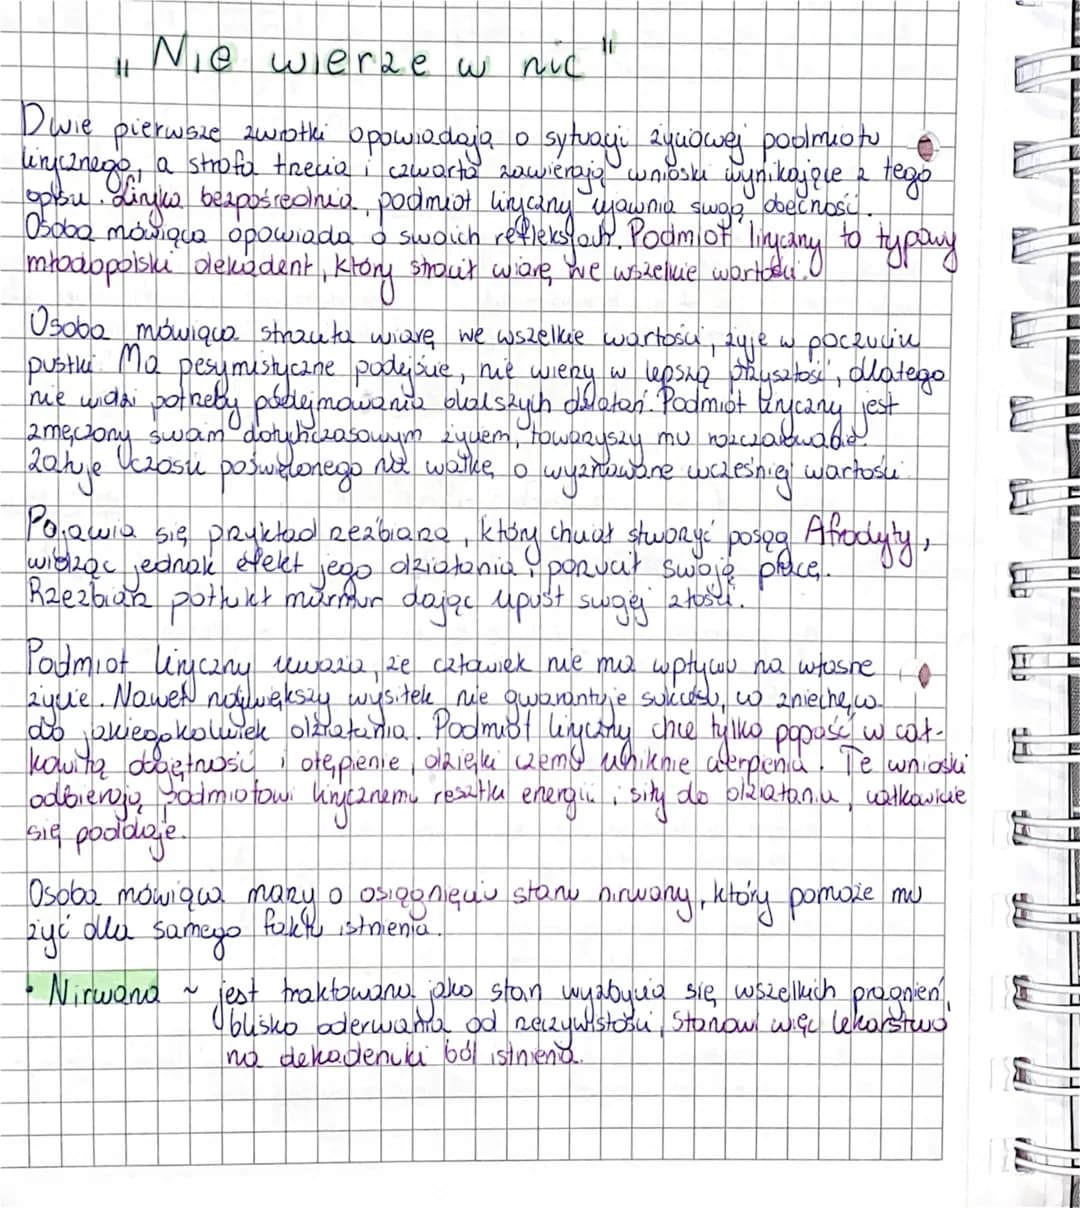 „Nie wierzę w nic"
Dwie pierwsze zwrotki opowiadają o sytuacji życiowej podmiotu
lirycznego, a strofa trzecia i czwarta zawierają wnioski wynikające z tego
opisu. Liryka bezpośrednia, podmiot liryczny ujawnia swoją obecność.
Osoba mówiąca opowiada o swoich refleksjach. Podmiot liryczny to typowy
młodopolski dekadent, który stracił wiarę we wszelkie wartości.
Osoba mówiąca straciła wiarę we wszelkie wartości, żyje w poczuciu
pustki. Ma pesymistyczne podejście, nie wierzy w lepszą przyszłość, dlatego
nie widzi potrzeby podejmowania dalszych działań. Podmiot liryczny jest
zmęczony swoim dotychczasowym życiem, towarzyszy mu rozczarowanie.
Żałuje czasu poświęconego na walkę o wyznawane wcześniej wartości.
Pojawia się przykład rzeźbiarza, który chciał stworzyć posąg Afrodyty,
widząc jednak efekt jego działania porzucił swoją pracę.
Rzeźbiarz potłukł marmur dając upust swojej złości.
Podmiot liryczny uważa, że człowiek nie ma wpływu na własne
życie. Nawet największy wysiłek nie gwarantuje sukcesu, co zniechęca
do jakiegokolwiek działania. Podmiot liryczny chce tylko popaść w cał-
kowitą obojętność i otępienie, dzięki czemu uniknie cierpienia. Te wnioski
odbierają podmiotowi lirycznemu resztki energii i siły do działania, całkowicie
się poddaje.
Osoba mówiąca marzy o osiągnięciu stanu nirwany, który pomoże mu
żyć dla samego faktu istnienia.
• Nirwana ~ jest traktowana jako stan wyzbycia się wszelkich pragnień,
blisko oderwania od rzeczywistości, stanowi więc lekarstwo
na dekadencki ból istnienia.